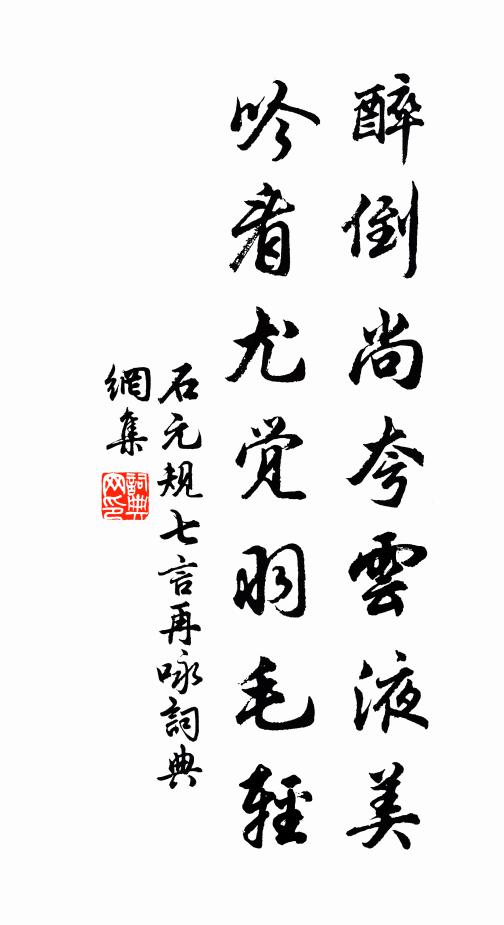 醉倒尚夸雲液美
吟看尤觉羽毛輕
石元規七言再咏詞典
網集
詞典
网印